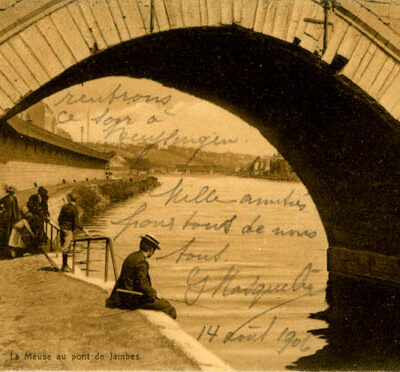 rentrons
ce soir à
Mille amitiés
pour tout de nous
tous
14 août 1906
La Meuse au pont de Jambes.